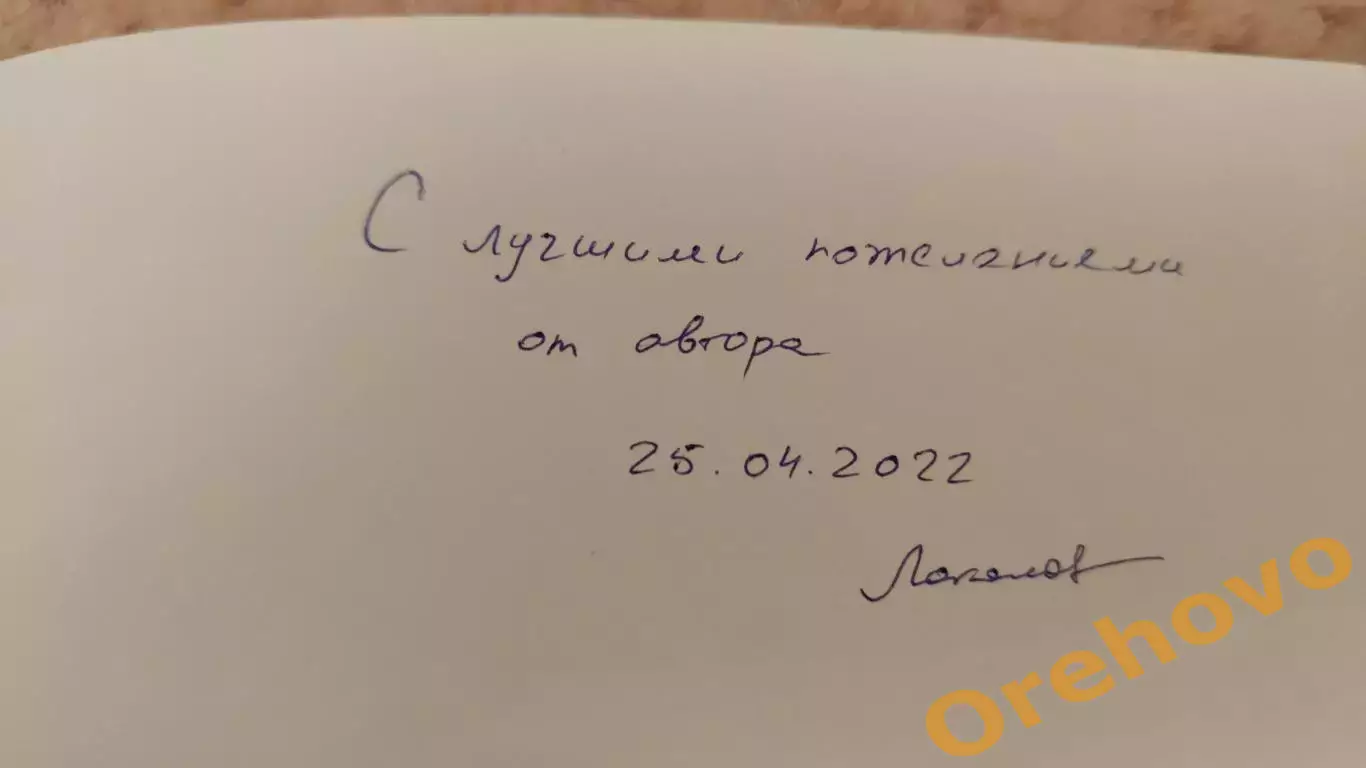 С лучшими пожеланиями
от автора
25.04.2022
Orehovo